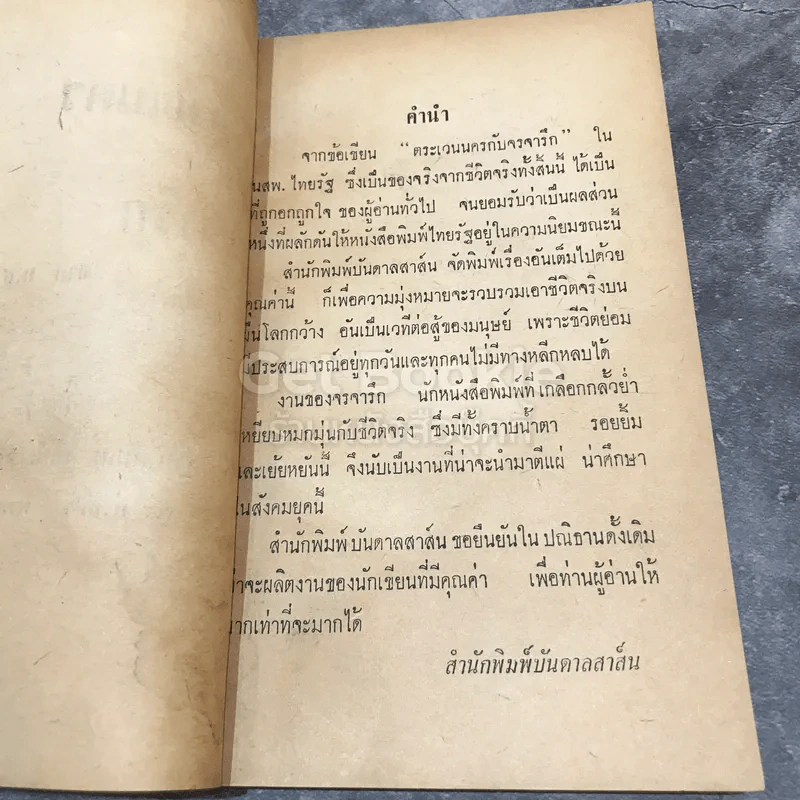 คำนำ
จากข้อเขียน "ตระเวนนครกับจรจารึก" ใน
นสพ. ไทยรัฐ ซึ่งเป็นของจริงจากชีวิตจริงทั้งสิ้นนี้ ได้เป็น
ที่ถูกอกถูกใจ ของผู้อ่านทั่วไป จนยอมรับว่าเป็นผลส่วน
หนึ่งที่ผลักดันให้หนังสือพิมพ์ไทยรัฐอยู่ในความนิยมขณะนี้
สำนักพิมพ์บันดาลสาส์น จัดพิมพ์เรื่องอันเต็มไปด้วย
คุณค่านี้ ก็เพื่อความมุ่งหมายจะรวบรวมเอาชีวิตจริงบน
ผืนโลกกว้าง อันเป็นเวทีต่อสู้ของมนุษย์ เพราะชีวิตย่อม
มีประสบการณ์อยู่ทุกวันและทุกคนไม่มีทางหลีกหลบได้
งานของจรจารึก นักหนังสือพิมพ์ที่ เกลือกกลั้วย่ำ
เหยียบหมกมุ่นกับชีวิตจริง ซึ่งมีทั้งคราบน้ำตา รอยยิ้ม
และเย้ยหยันนี้ จึงนับเป็นงานที่น่าจะนำมาตีแผ่ น่าศึกษา
ในสังคมยุคนี้
สำนักพิมพ์ บันดาลสาส์น ขอยืนยันใน ปณิธานดั้งเดิม
ว่าจะผลิตงานของนักเขียนที่มีคุณค่า เพื่อท่านผู้อ่านให้
มากเท่าที่จะมากได้
สำนักพิมพ์บันดาลสาส์น